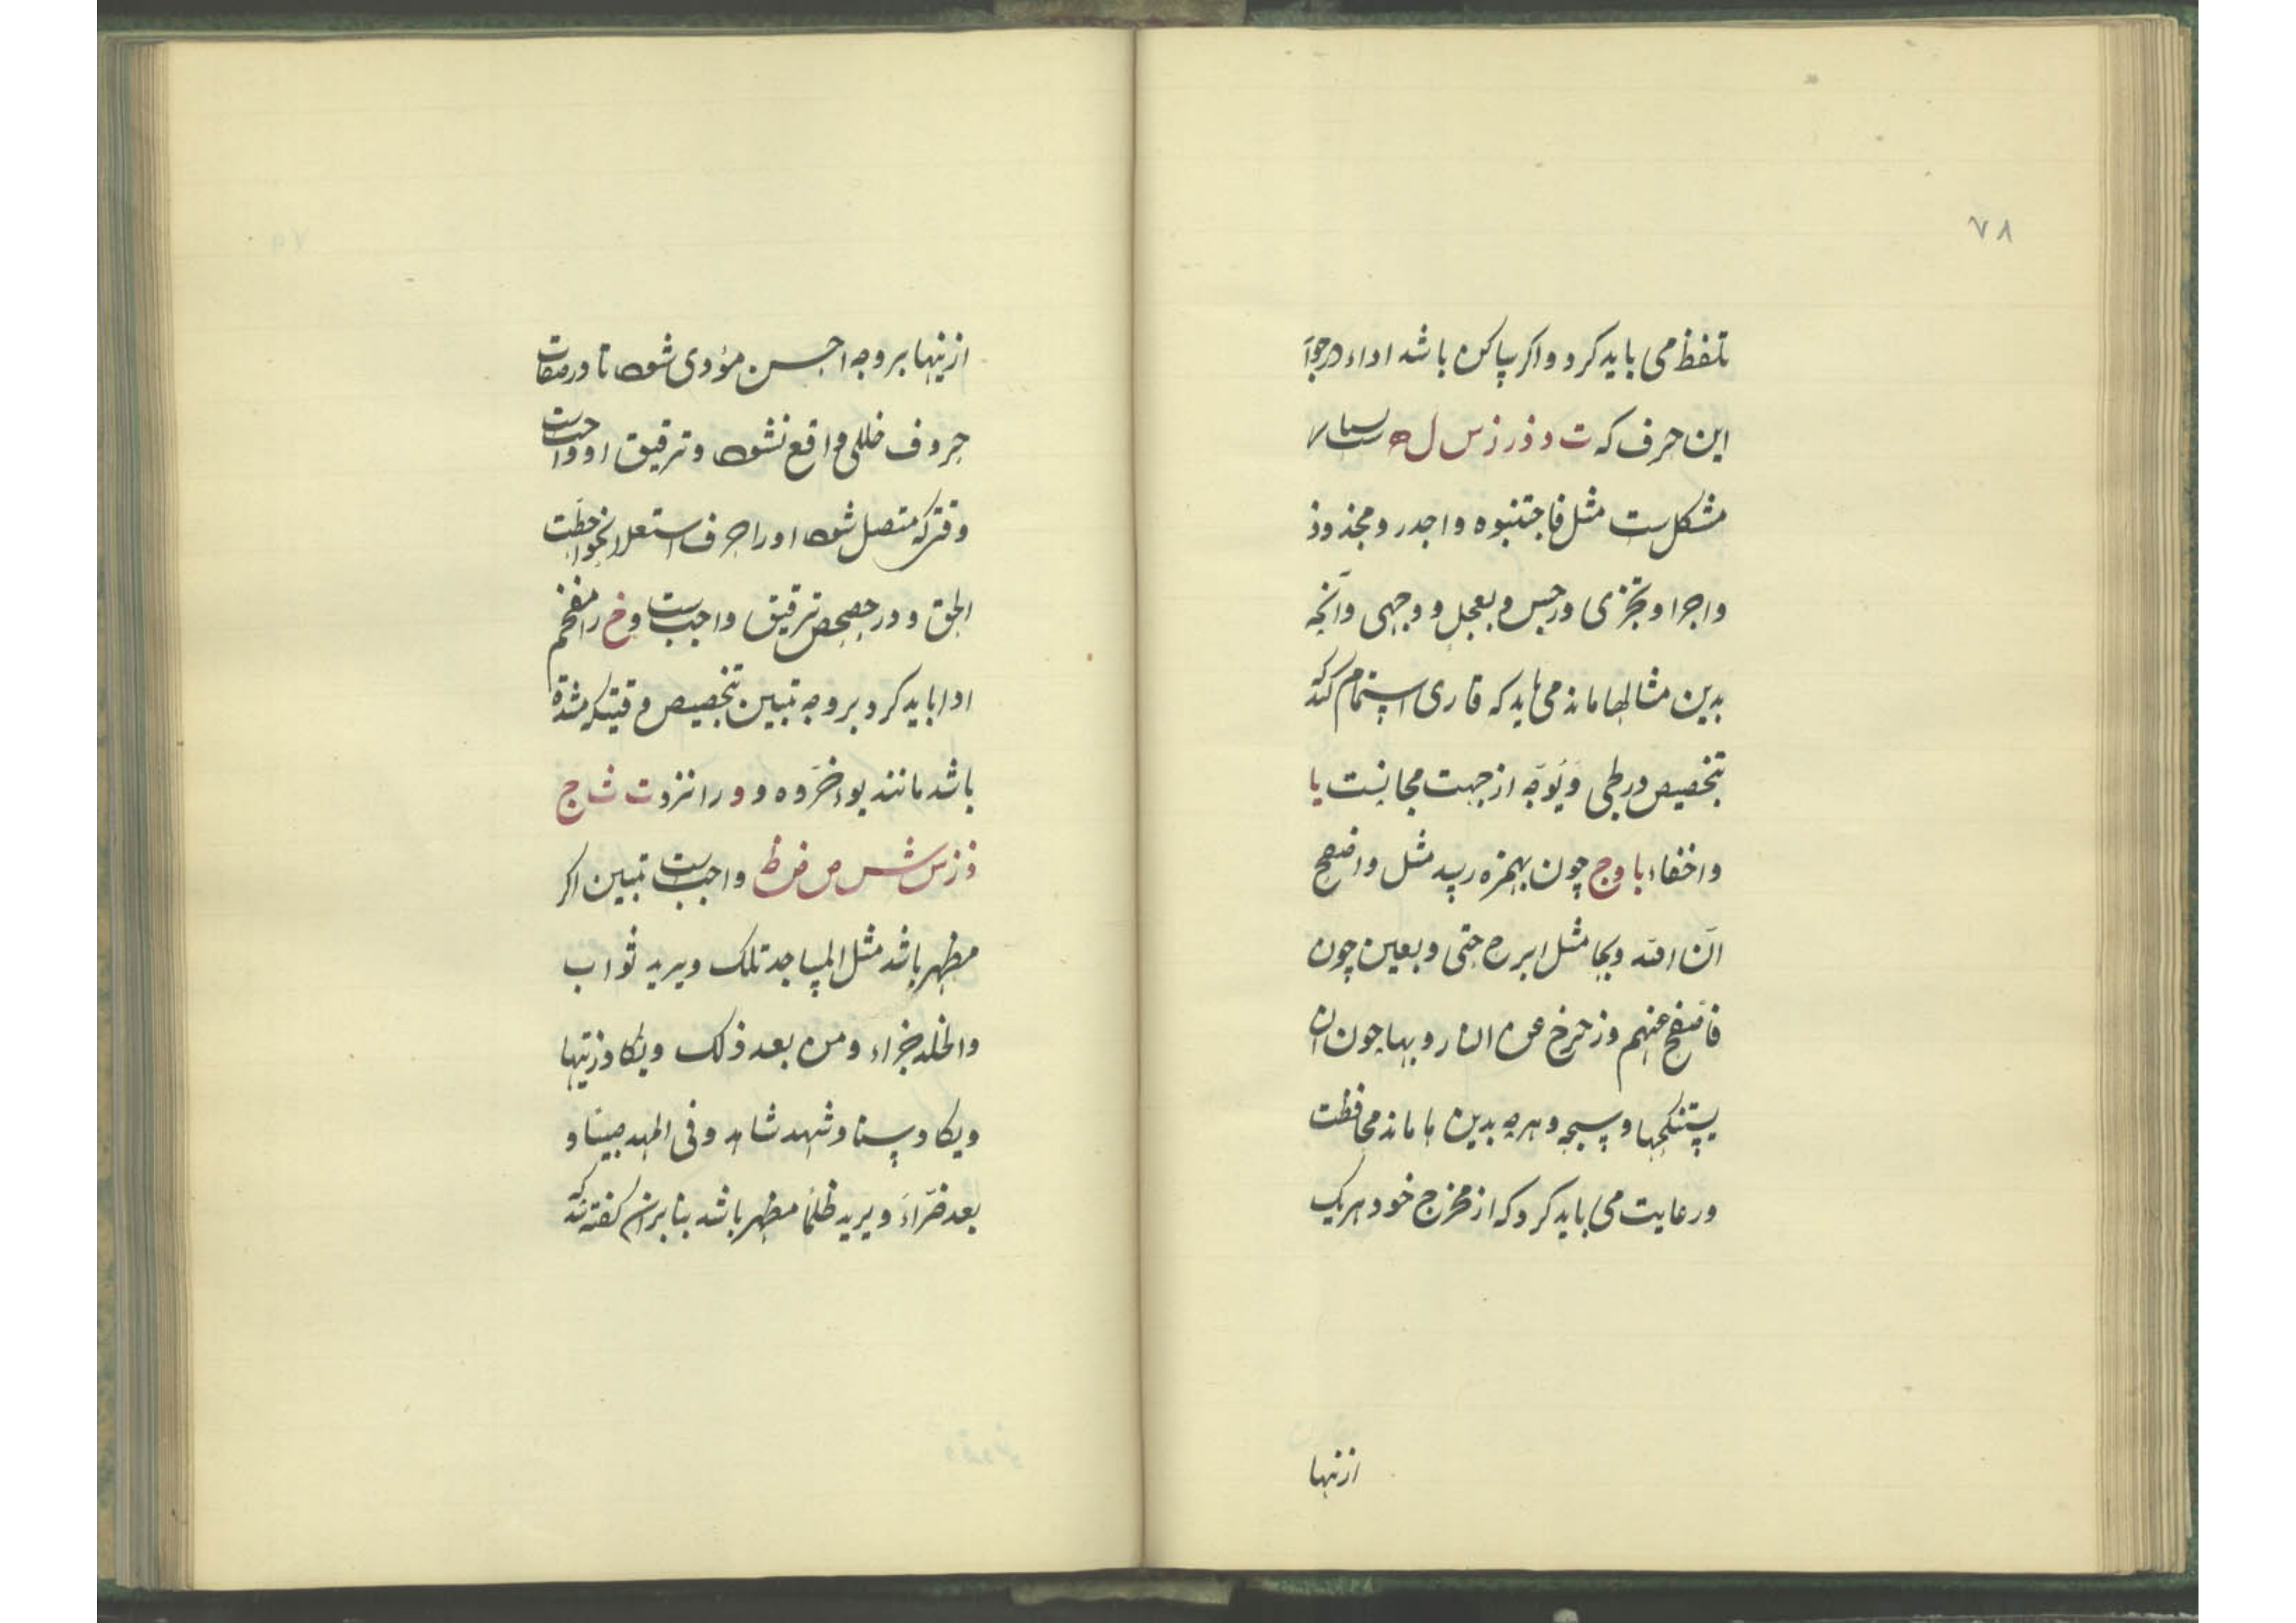 ۷۸
تلفظ می باید کرد و اگر ساکن باشد اداء در جوار
این حرف که ت د ذ ر ز س ل ه
مشکل ست مثل فاجتنبوه و اجدر و مجذوذ
و اجرا و تجزی و رجس و بعجل و وجهی و آنچه
بدین مثالها ماند می باید که قاری اهتمام کند که
بتخصیص در طی و یوجه از جهت مجانست یا
و اخفاء با و ج چون بهمزه رسد مثل و اصفح
ان الله وبحا مثل ابرح حتی و بعین چون
فاصفح عنهم و زحزح عن النار و بها چون ان
یستنکحها و سبحه و هرچه بدین ها ماند محافظت
و رعایت می باید کرد که از مخرج خود هر یک
ازینها
ازینها بر وجه احسن مؤدی شود تا در صفات
حروف خللی واقع نشود و ترقیق او واجبست
وقتی که متصل شود او را حرف استعلا نحو احطت
الحق و در حصحص ترقیق واجبست و خ را مفخم
ادا باید کرد بر وجه تبیین بتخصیص وقتیکه مشدد
باشد مانند یؤخره و د را نزد ت ث ا ج
ذ ز س ش ص ض ظ واجبست تبیین اگر
مظهر باشد مثل المساجد تلک و یرید ثواب
والخلد جزاء و من بعد ذلک و یکاد زیتها
و یکاد سنا و شهد شاهد و فی المهد صبیا و
بعد ضراء و یرید ظلما مظهر باشد بنابران گفته اند که